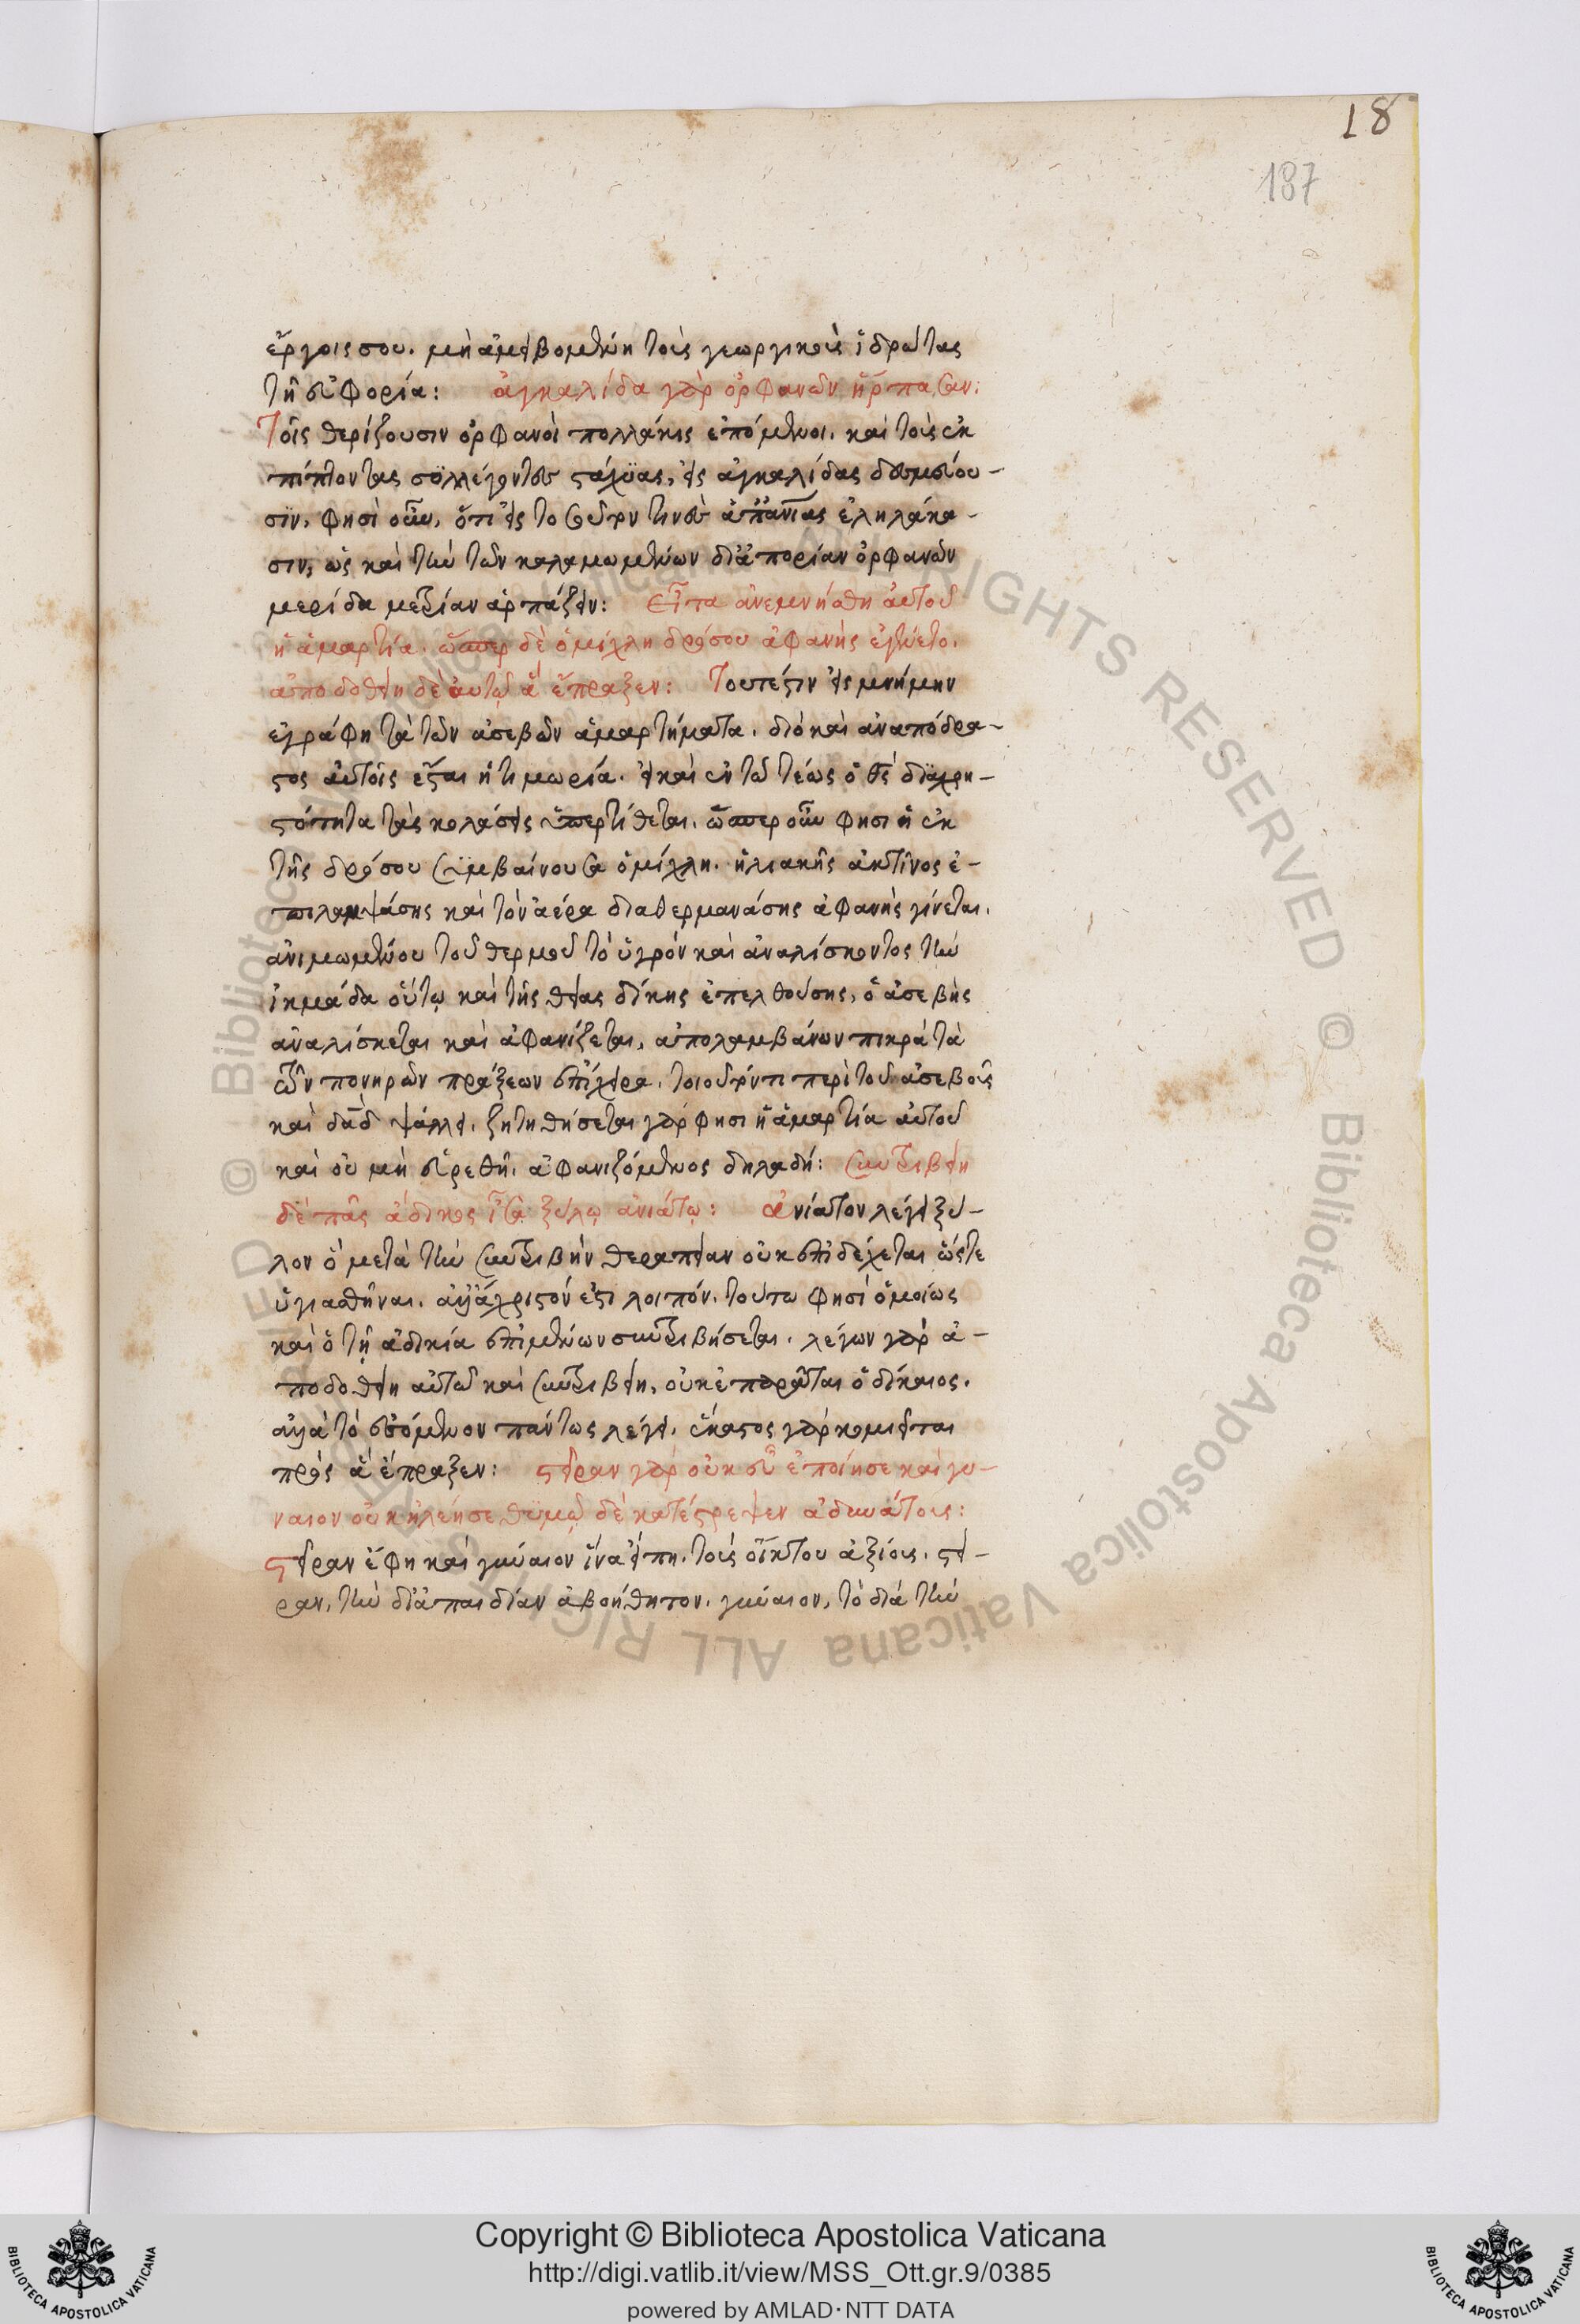 18
187
ἔργοις σου. μὴ ἀμειβομένη τοὺς γεωργικοὺς ἱδρῶτας
τῇ εὐφορίᾳ: ἀγκαλίδα γὰρ ὀρφανῶν ἥρπασαν:
Τοῖς θερίζουσιν ὀρφανοὶ πολλάκις ἑπόμενοι. καὶ τοὺς ἐκ
πίπτοντας συλλέγοντες στάχυας, εἰς ἀγκαλίδας δεσμεύου-
σιν. φησὶ οὖν, ὅτι εἰς τοσοῦτόν τινες ἀπανίας ἐληλάκα-
σιν, ὡς καὶ τὴν τῶν καλαμωμένων δι' ἀπορίαν ὀρφανῶν
μερίδα μετρίαν ἁρπάζειν: Εἶτα ἀνεμνήσθη αὐτοῦ
ἡ ἁμαρτία. ὥσπερ δὲ ὁμίχλη δρόσου ἀφανὴς ἐγένετο.
ἀποδοθείη δὲ αὐτῷ ἃ ἔπραξεν: Τουτέστιν εἰς μνήμην
ἐγράφη τὰ τῶν ἀσεβῶν ἁμαρτήματα. διὸ καὶ ἀναπόδρα-
στος αὐτοῖς ἔσται ἡ τιμωρία. εἰ καὶ ἐν τῷ τέως ὁ θς διὰ χρη-
στότητα τὰς κολάσεις ὑπερτίθεται. ὥσπερ οὖν φησι ἡ ἐκ
τῆς δρόσου συμβαίνουσα ὁμίχλη. ἡλιακῆς ἀκτῖνος ἐ-
πιλαμψάσης καὶ τὸν ἀέρα διαθερμανάσης ἀφανὴς γίνεται.
ἀνιμωμένου τοῦ θερμοῦ τὸ ὑγρὸν καὶ ἀναλίσκοντος τὴν
ἰκμάδα οὕτω καὶ τῆς θείας δίκης ἐπελθούσης, ὁ ἀσεβὴς
ἀναλίσκεται καὶ ἀφανίζεται, ἀπολαμβάνων πικρὰ τὰ
τῶν πονηρῶν πράξεων ἐπίχειρα. τοιοῦτόν τι περὶ τοῦ ἀσεβοῦς
καὶ δαδ ψάλλει. ζητηθήσεται γάρ φησι ἡ ἁμαρτία αὐτοῦ
καὶ οὐ μὴ εὑρεθῇ. ἀφανιζόμενος δηλαδή: Συντριβείη
δὲ πᾶς ἄδικος ἴσα ξύλῳ ἀνιάτῳ: ἀνίατον λέγει ξύ-
λον ὃ μετὰ τὴν συντριβὴν θεραπείαν οὐκ ἐπιδέχεται ὥστε
ὑγιασθῆναι. ἀλλ' ἄχριστόν ἐστι λοιπόν. τούτω φησὶ ὁμοίως
καὶ ὁ τῇ ἀδικίᾳ ἐπιμένων συντριβήσεται. λέγων γὰρ ἀ-
ποδοθείη αὐτῷ καὶ συντριβείη, οὐκ ἐπαρᾶται ὁ δίκαιος.
ἀλλὰ τὸ ἑπόμενον πάντως λέγει. ἕκαστος γὰρ κομιεῖται
πρὸς ἃ ἔπραξεν: στεῖραν γὰρ οὐκ εὖ ἐποίησε καὶ γυ-
ναιον οὐκ ἠλέησε θυμῷ δὲ κατέστρεψεν ἀδυνάτοις:
στεῖραν ἔφη καὶ γύναιον ἵνα εἴπῃ. τοὺς οἴκτου ἀξίους. στεῖ-
ραν, τὴν δι' ἀπαιδίαν ἀβοήθητον. γύναιον, τὸ διὰ τὴν
Copyright © Biblioteca Apostolica Vaticana
http://digi.vatlib.it/view/MSS_Ott.gr.9/0385
powered by AMLAD · NTT DATA